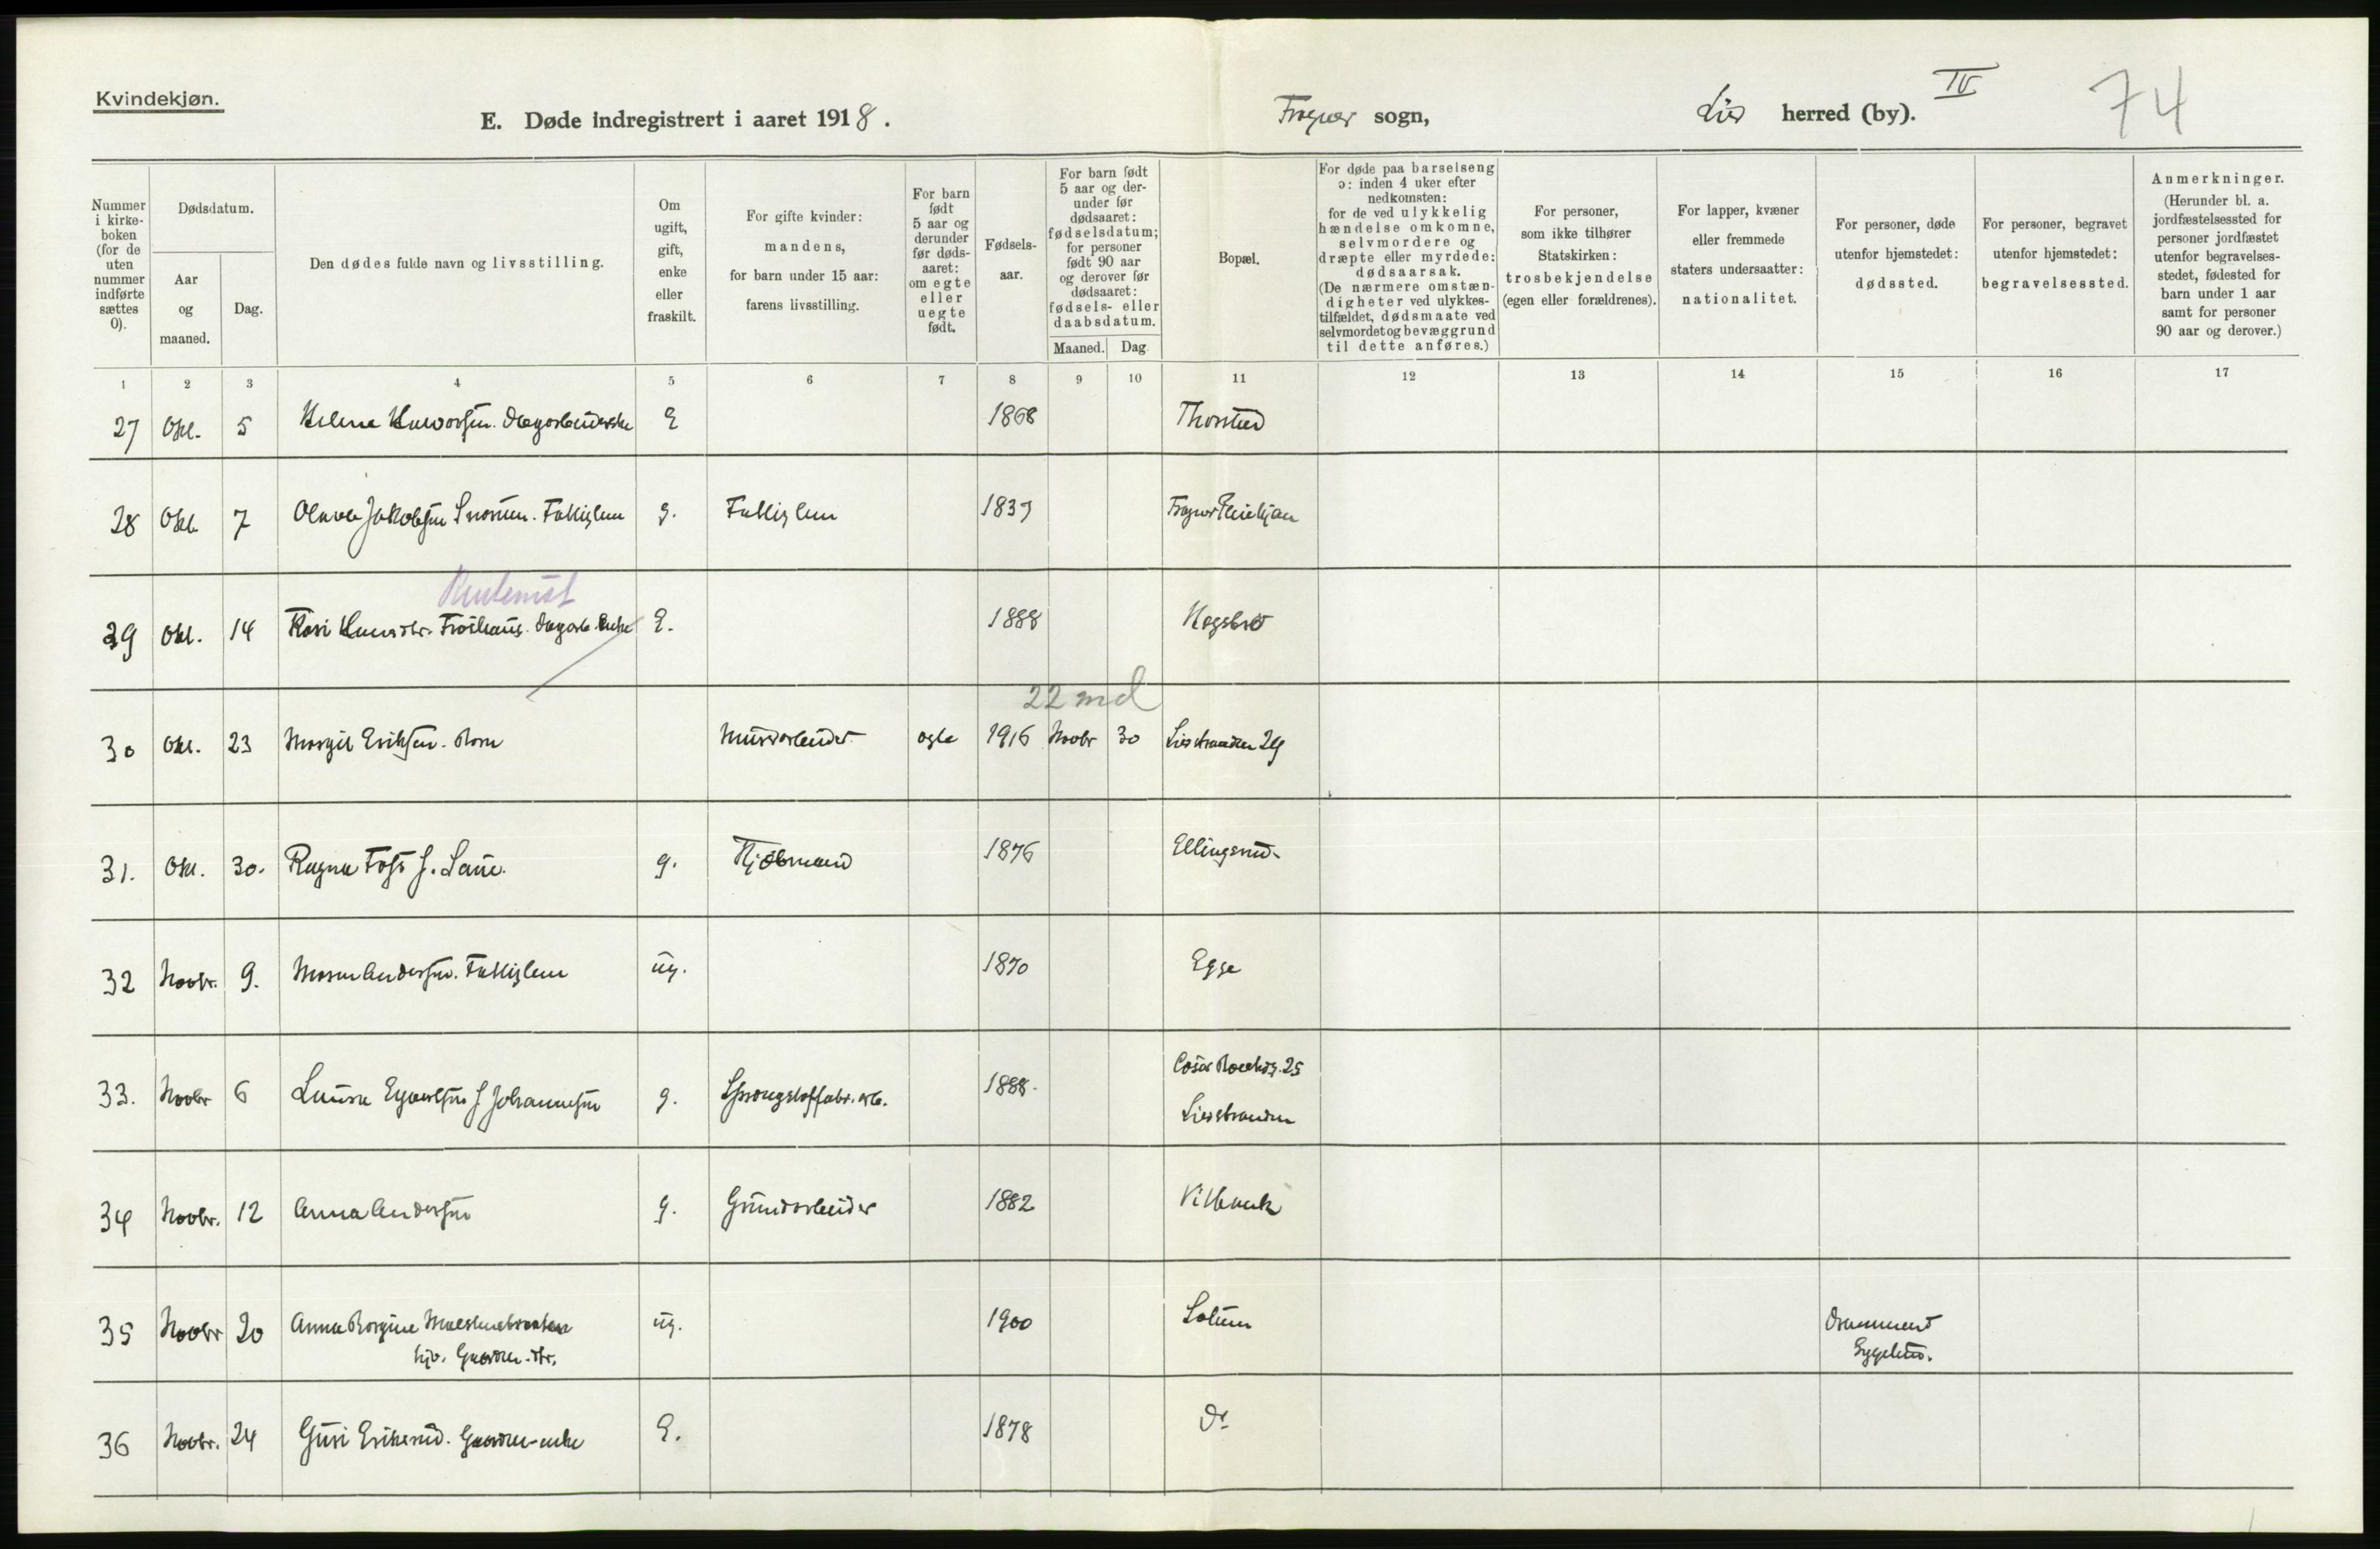 Kvindekjøn.
E. Døde indregistrert i aaret 1918.
Frogner sogn,
Lier herred (by).
IV
74
Nummer i kirke- boken (for de uten nummer indførte sættes 0).
Dødsdatum.
Aar og maaned.
Dag.
Den dødes fulde navn og livsstilling.
Om ugift, gift, enke eller fraskilt.
For gifte kvinder: mandens, for barn under 15 aar: farens livsstilling.
For barn født 5 aar og derunder før døds- aaret: om egte eller uegte født.
Fødsels- aar.
For barn født 5 aar og der- under før dødsaaret: fødselsdatum; for personer født 90 aar og derover før dødsaaret: fødsels- eller daabsdatum.
Maaned. Dag
Bopæl.
For døde paa barselseng ɔ: inden 4 uker efter nedkomsten: for de ved ulykkelig hændelse omkomne, selvmordere og dræpte eller myrdede: dødsaarsak. (De nærmere omstæn- digheter ved ulykkes- tilfældet, dødsmaate ved selvmordet og bevæggrund til dette anføres.)
For personer, som ikke tilhører Statskirken: trosbekjendelse (egen eller forældrenes).
For lapper, kvæner eller fremmede staters undersaatter: nationalitet.
For personer, døde utenfor hjemstedet: dødssted.
For personer, begravet utenfor hjemstedet: begravelsessted.
Anmerkninger. (Herunder bl. a. jordfæstelsessted for personer jordfæstet utenfor begravelses- stedet, fødested for barn under 1 aar samt for personer 90 aar og derover.)
1 2 3 4 5 6 7 8 9 10 11 12 13 14 15 16 17
27 Okt. 5 Helene Halvorsen. Dagarbeiderske E 1868 Thorstad
28 Okt. 7 Olava Jakobsen. Fattiglem g. Fattiglem 1837 Frogner Pleiehjem
Rentenist
29 Okt. 14 Kari Enke E. 1888
22 md
30 Okt. 23 Margit Eriksen. Barn Murarbeider egte 1916 Novbr 30 Lierstranden 29
31. Okt. 30. Ragna Foss f. g. Kjøbmand 1876 Ellingsrud
32 Novbr. 9. Maren Andersen. Fattiglem ug. 1870 Egge
33. Novbr 6 Laura f Johannesen g. Sprængstoffabr. arb. 1888. 25
Lierstranden
34 Novbr. 12 Anna Andersen g. Grundarbeider 1882 Vitbank
35 Novbr 20 Anna Borgine ug. 1900 Solum Drammens
hjv. Gaardbr. dtr. Sygehus.
36 Novbr. 24 Guri Eriksrud. Gaardbr-enke E. 1878 Do